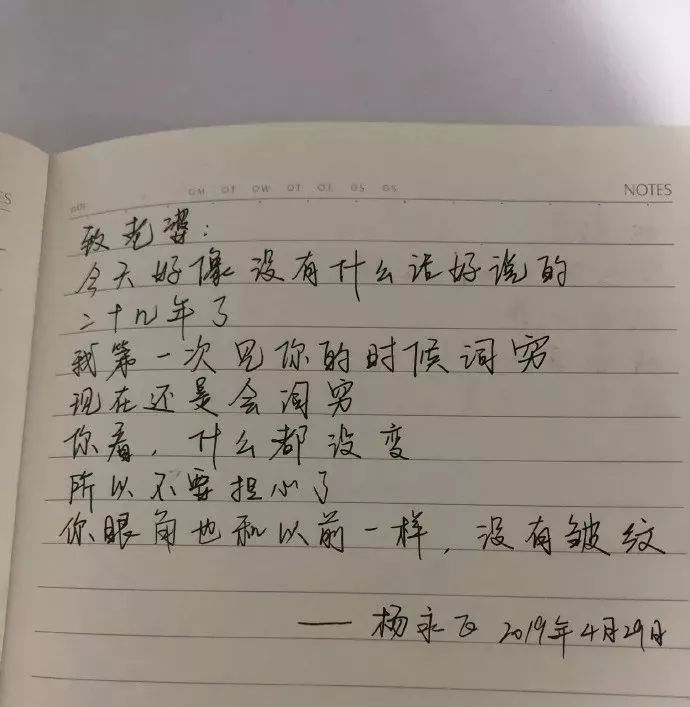 NOTES
DATE OM OT OW OT OF OS OS
致老婆:
今天好像没有什么话好说的
二十几年了
我第一次见你的时候词穷
现在还是会词穷
你看,什么都没变
所以不要担心了
你眼角也和以前一样,没有皱纹
——杨永飞 2019年4月29日